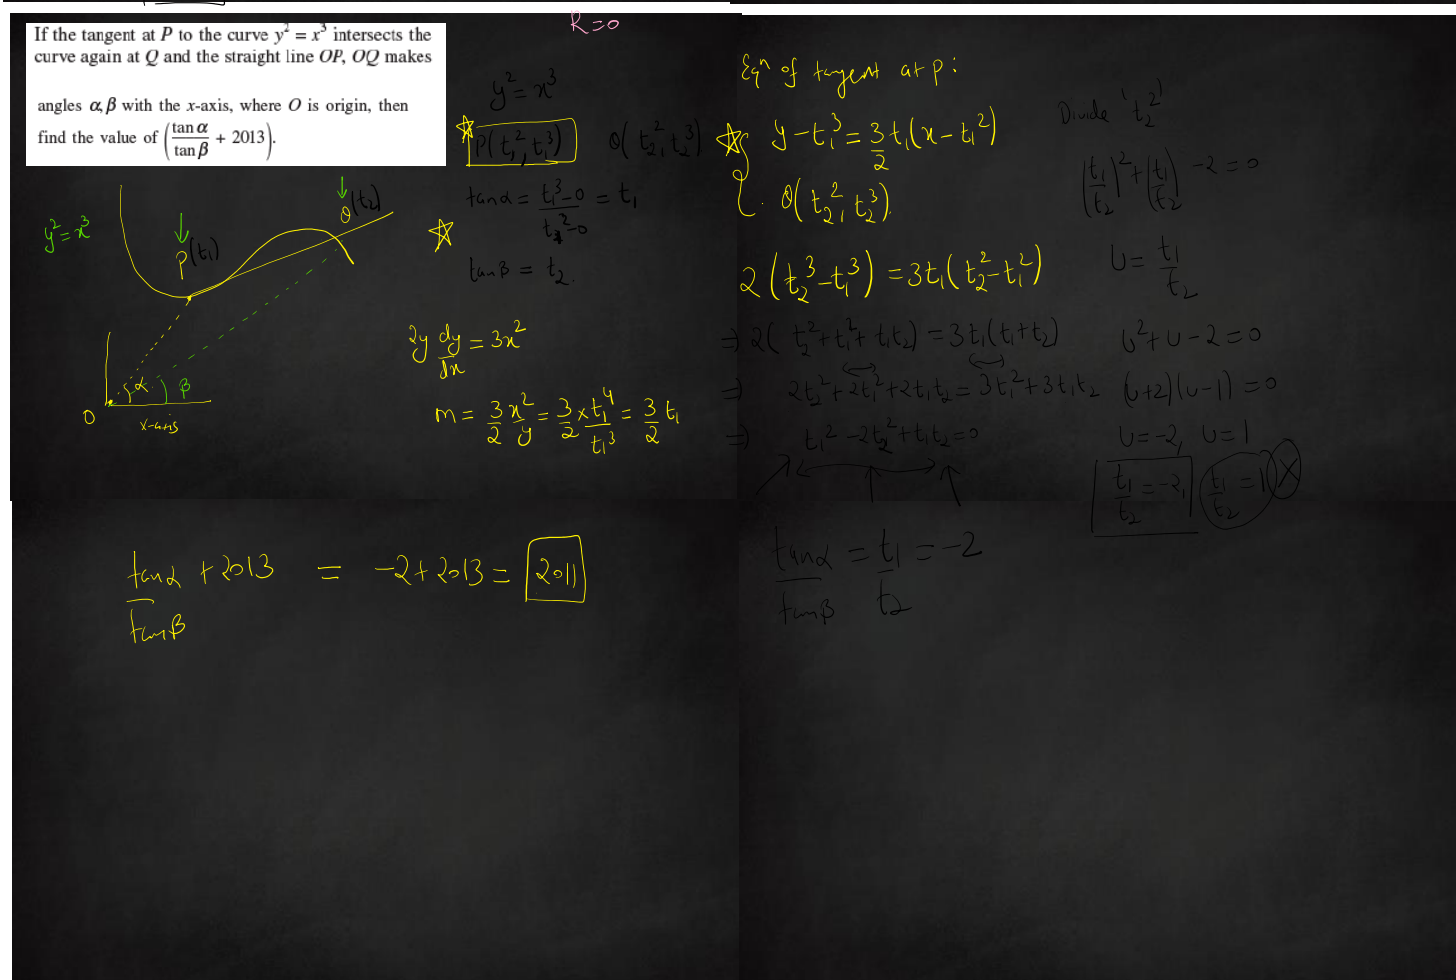 R=0
If the tangent at P to the curve y² = x³ intersects the
curve again at Q and the straight line OP, OQ makes
angles α, β with the x-axis, where O is origin, then
find the value of (tan α / tan β + 2013).
y² = x³
P(t₁)
Q(t₂)
O
α
β
x-axis
y² = x³
P(t₁², t₁³) Q(t₂², t₂³)
tanα = (t₁³-0)/(t₁²-0) = t₁
tanβ = t₂.
2y dy/dx = 3x²
m = 3/2 x²/y = 3/2 × t₁⁴/t₁³ = 3/2 t₁
Eqⁿ of tangent at P :
y - t₁³ = 3/2 t₁(x - t₁²)
Q(t₂², t₂³).
2(t₂³ - t₁³) = 3t₁(t₂² - t₁²)
⇒ 2(t₂² + t₁² + t₁t₂) = 3t₁(t₁+t₂)
⇒ 2t₂² + 2t₁² + 2t₁t₂ = 3t₁² + 3t₁t₂
⇒ t₁² - 2t₂² + t₁t₂ = 0
Divide 't₂²'
(t₁/t₂)² + (t₁/t₂) - 2 = 0
u = t₁/t₂
u² + u - 2 = 0
(u+2)(u-1) = 0
u = -2, u = 1
t₁/t₂ = -2, t₁/t₂ = 1 X
tanα/tanβ = t₁/t₂ = -2
tanα/tanβ + 2013 = -2 + 2013 = 2011